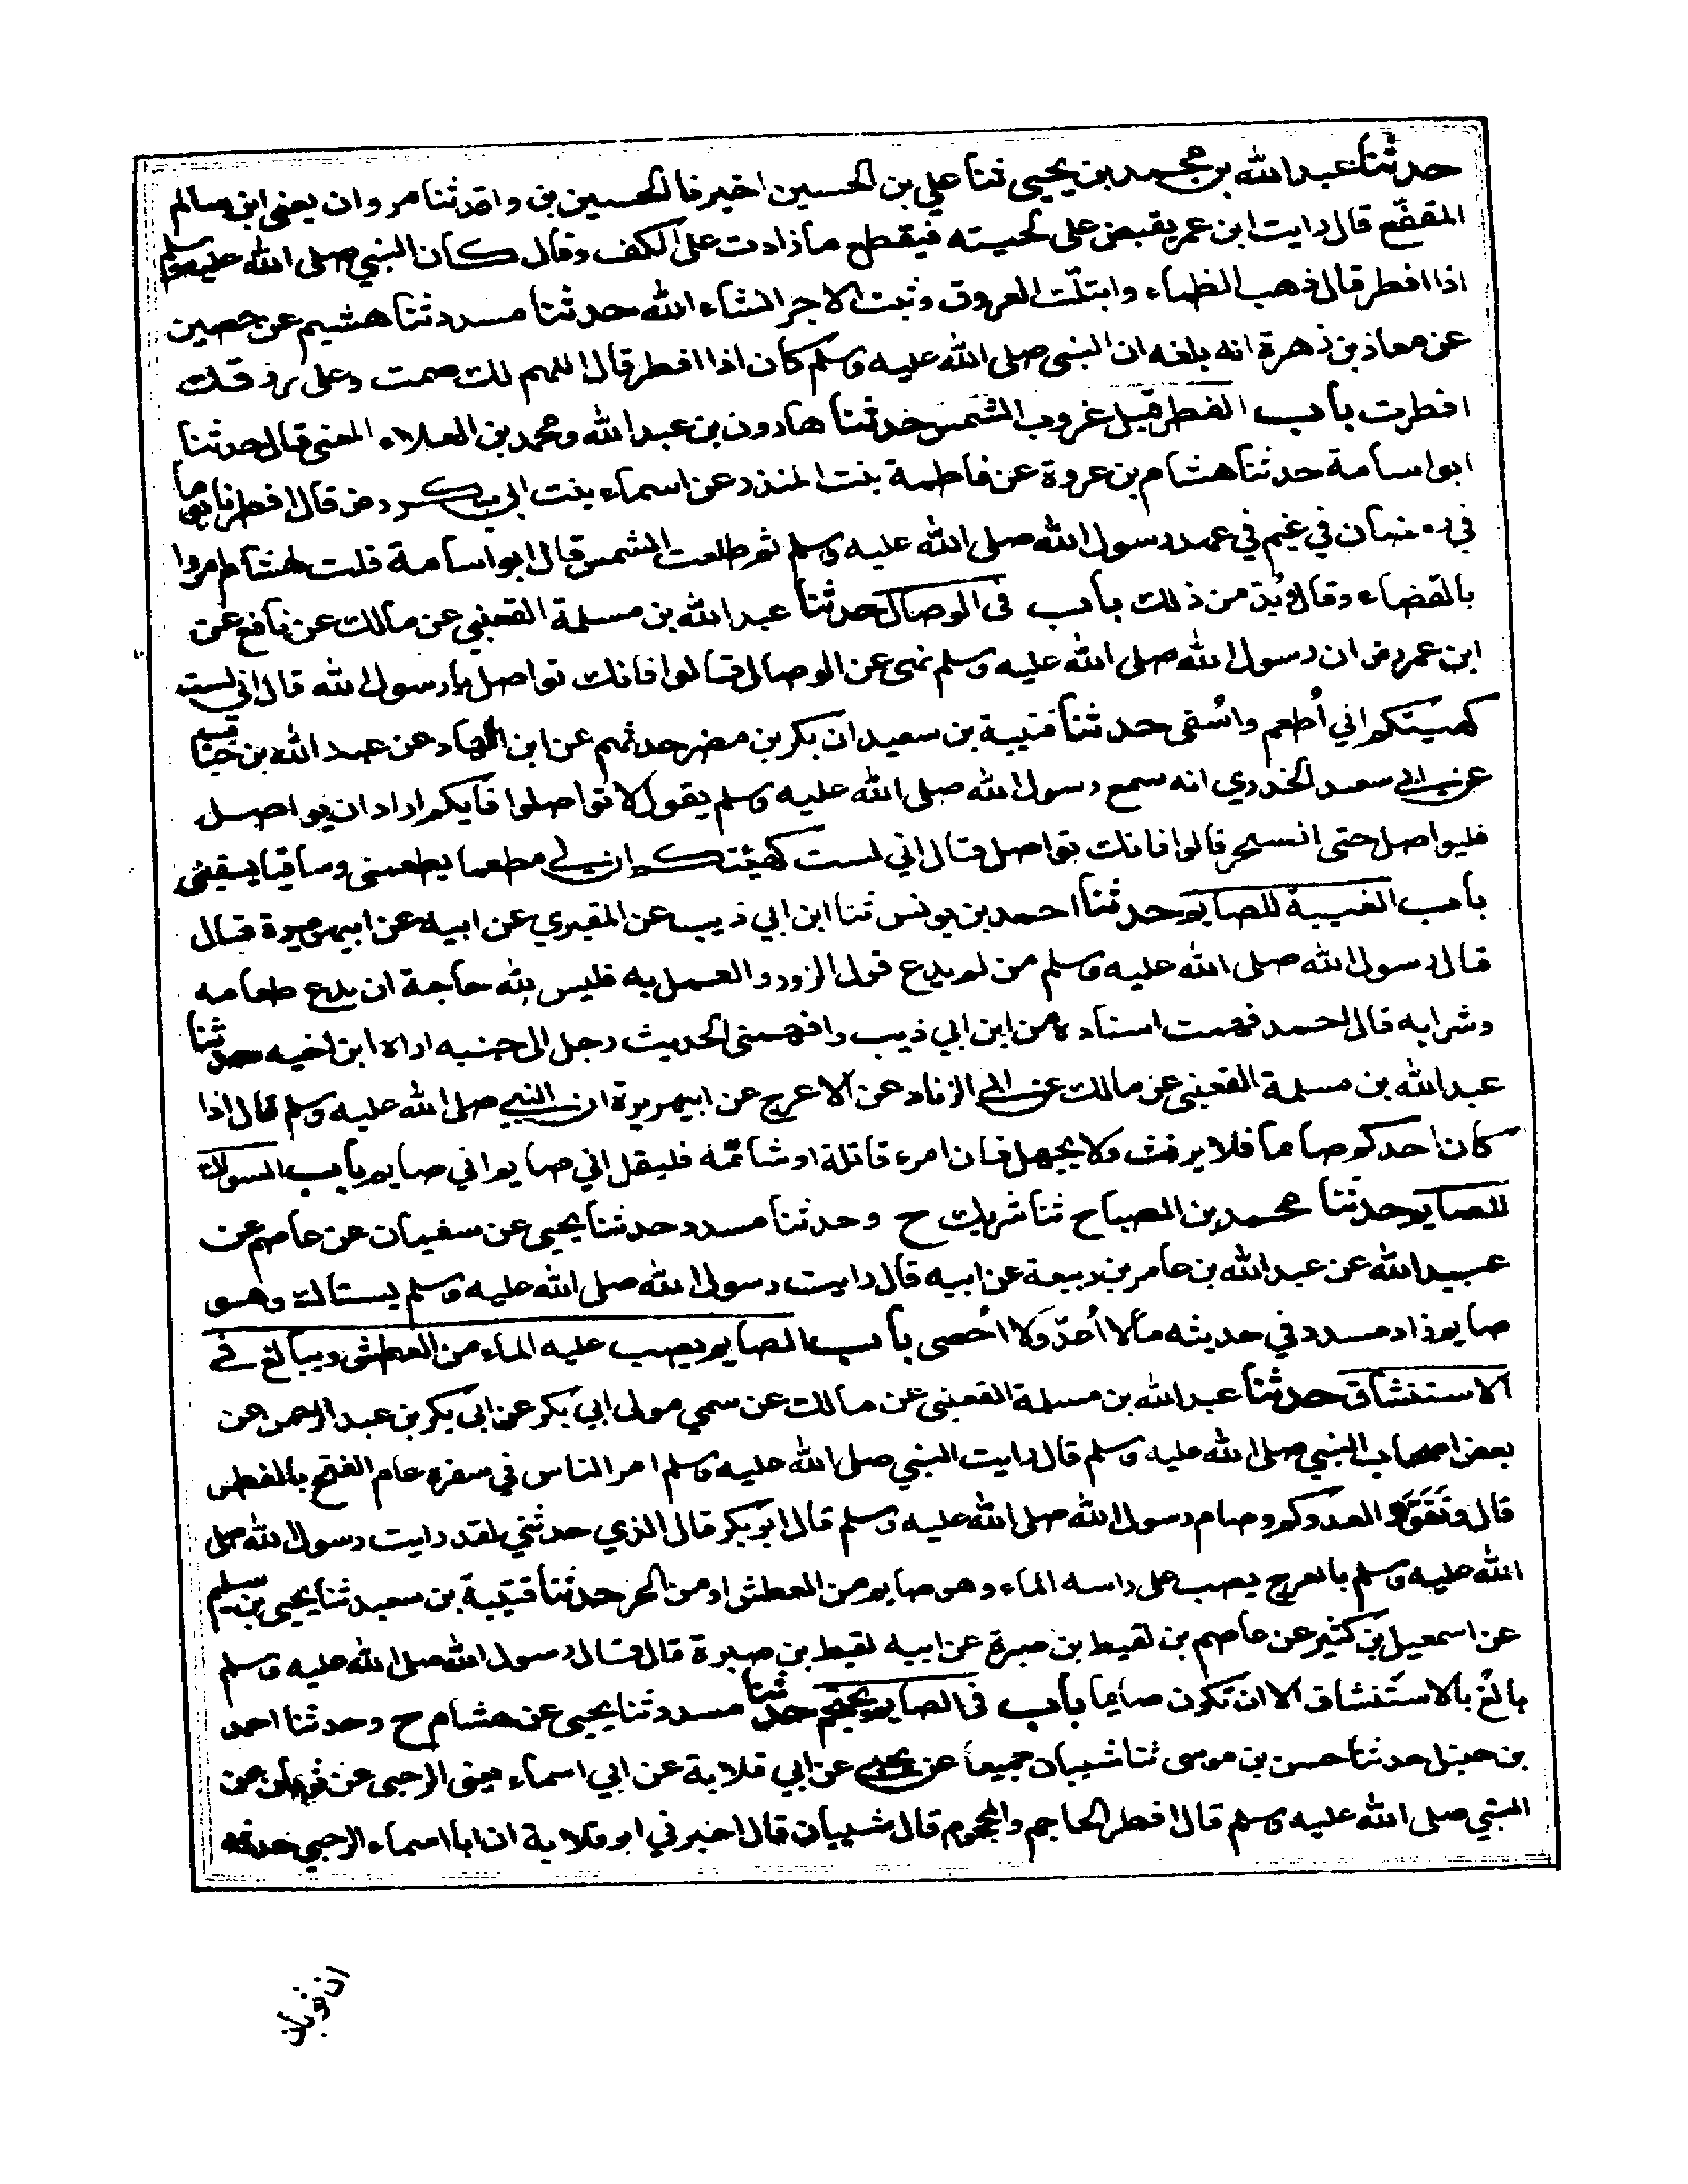 حدثنا عبد الله بن محمد بن يحيى ثنا علي بن الحسين اخبرنا الحسين بن واقد ثنا مروان يعنى ابن سالم
المقفّع قال رايت ابن عمر يقبض على لحيته فيقطع ما زادت على الكف وقال كان النبي صلى الله عليه وسلم
اذا افطر قال ذهب الظماء وابتلّت العروق وثبت الاجر انشاء الله حدثنا مسدد ثنا هشيم عن حصين
عن معاذ بن زهرة انه بلغه ان النبى صلى الله عليه وسلم كان اذا افطر قال اللهم لك صمت وعلى رزقك
افطرت باب الفطر قبل غروب الشمس حدثنا هارون بن عبد الله ومحمد بن العلاء المعنى قال حدثنا
ابو اسامة حدثنا هشام بن عروة عن فاطمة بنت المنذر عن اسماء بنت ابي بكر رض قال افطرنا يوما
في رمضان في غيم في عهد رسول الله صلى الله عليه وسلم ثم طلعت الشمس قال ابو اسامة قلت لهشام امروا
بالقضاء وقال وبُدّ من ذلك باب فى الوصال حدثنا عبد الله بن مسلمة القعنبي عن مالك عن نافع عن
ابن عمر رض ان رسول الله صلى الله عليه وسلم نهى عن الوصال قالوا فانك تواصل يا رسول الله قال اني لست
كهيئتكم اني أُطعم واسُقى حدثنا قتيبة بن سعيد ان بكر بن مضر حدثهم عن ابن الهاد عن عبد الله بن خباب
عن ابي سعيد الخدري انه سمع رسول الله صلى الله عليه وسلم يقول لا تواصلوا فايكم اراد ان يواصل
فليواصل حتى السحر قالوا فانك تواصل قال اني لست كهيئتكم ان لي مطعما يطعمنى وساقيا يسقينى
باب الغيبة للصايم حدثنا احمد بن يونس ثنا ابن ابي ذيب عن المقبري عن ابيه عن ابيهريرة قال
قال رسول الله صلى الله عليه وسلم من لم يدع قول الزور والعمل به فليس لله حاجة ان يدع طعامه
وشرابه قال احمد فهمت اسناده من ابن ابي ذيب وافهمنى الحديث رجل الى جنبه اراه ابن اخيه حدثنا
عبد الله بن مسلمة القعنبى عن مالك عن ابي الزناد عن الاعرج عن ابيهريرة ان النبي صلى الله عليه وسلم قال اذا
كان احدكم صاما فلا يرفث ولا يجهل فان امرء قاتلة او شاتمه فليقل اني صايم اني صايم باب السواك
للصايم حدثنا محمد بن الصباح ثنا شريك ح وحدثنا مسدد حدثنا يحيى عن سفيان عن عاصم عن
عبيد الله عن عبد الله بن عامر بن ربيعة عن ابيه قال رايت رسول الله صلى الله عليه وسلم يستاك وهو
صايم زاد مسدد في حديثه ما لا اُعدّ ولا اُحصى باب الصايم يصب عليه الماء من العطش ويبالغ في
الاستنشاق حدثنا عبد الله بن مسلمة القعنبى عن مالك عن سمي مولى ابي بكر عن ابى بكر بن عبد الرحمن عن
بعض اصحاب النبي صلى الله عليه وسلم قال رايت النبي صلى الله عليه وسلم امر الناس في سفره عام الفتح بالفطر
قال وتَقَوَّو العدوكم وصام رسول الله صلى الله عليه وسلم قال ابو بكر قال الذي حدثني لقد رايت رسول الله صلى
الله عليه وسلم بالعرج يصب على راسه الماء وهو صايم من العطش او من الحر حدثنا قتيبة بن سعيد ثنا يحيى بن سليم
عن اسمعيل بن كثير عن عاصم بن لقيط بن صبرة عن ابيه لقيط بن صبرة قال قال رسول الله صلى الله عليه وسلم
بالغ بالاستنشاق الا ان تكون صايما باب فى الصايم يحتجم حدثنا مسدد ثنا يحيى عن هشام ح وحدثنا احمد
بن حنبل حدثنا حسن بن موسى ثنا شيبان جميعا عن يحيى عن ابي قلابة عن ابي اسماء يعنى الرحبى عن ثوبان عن
النبي صلى الله عليه وسلم قال افطر الحاجم والمحجوم قال شيبان قال اخبرني ابو قلابة ان ابا اسماء الرحبي حدثه
ان ثوبان